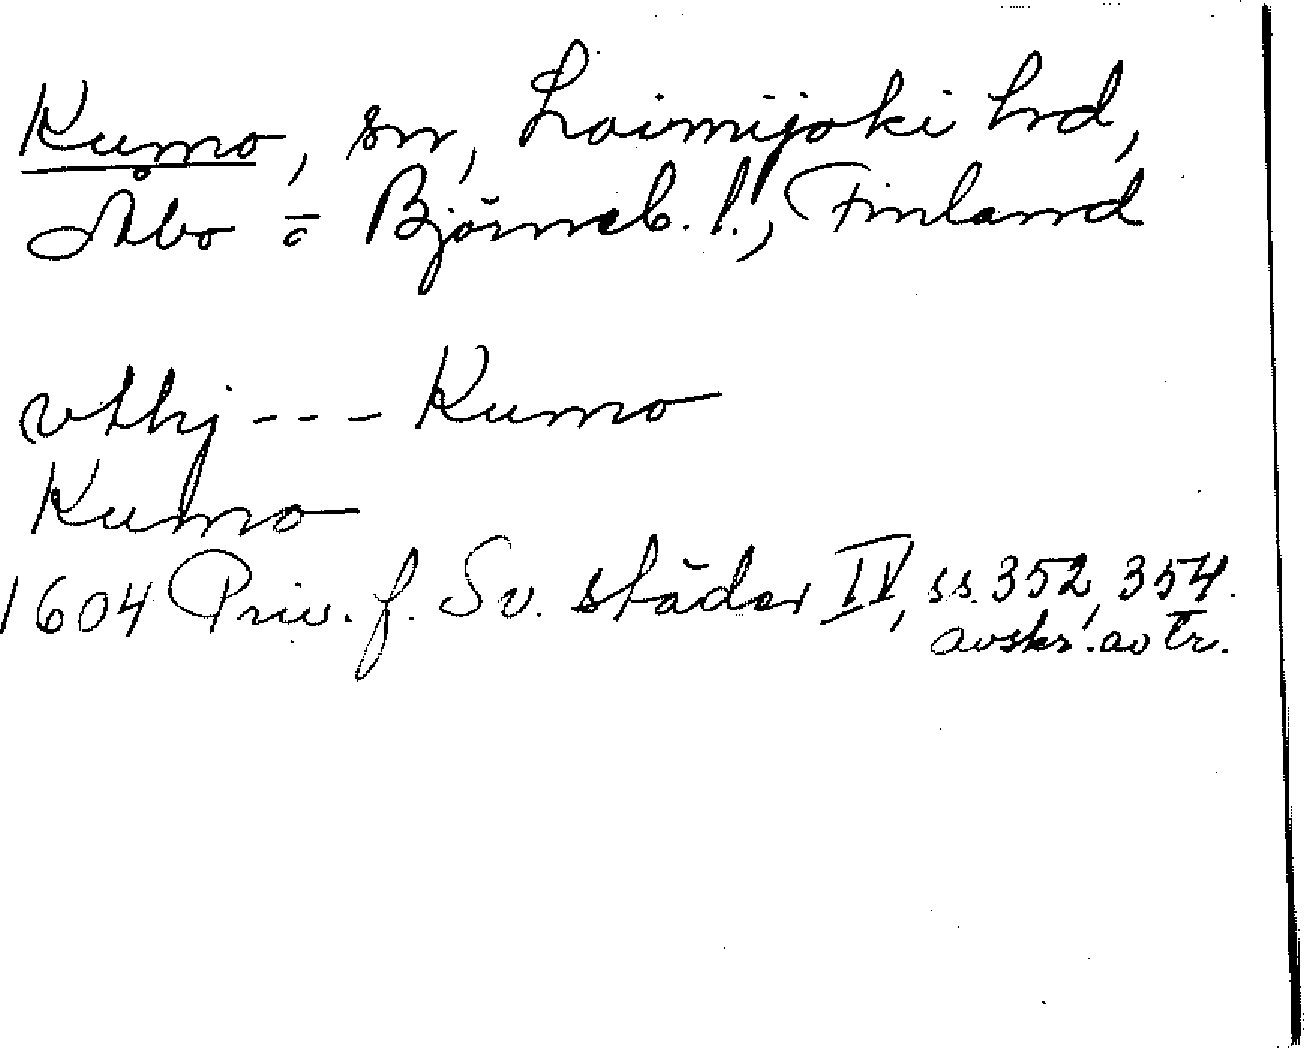 Kumo, sn, Loimijoki hrd,
Åbo o Björneb. l., Finland
vthj --- Kumo
Kumo
1604 Priv. f. Sv. städer IV, ss. 352, 354.
avskr. av tr.